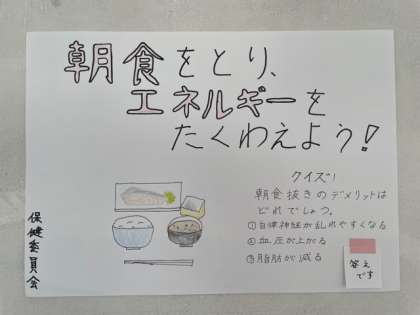 朝食をとり、
エネルギーを
たくわえよう!
クイズ!
朝食抜きのデメリットは
どれでしょう。
①自律神経が乱れやすくなる
②血圧が上がる
③脂肪が減る
答え
です
保健委員会